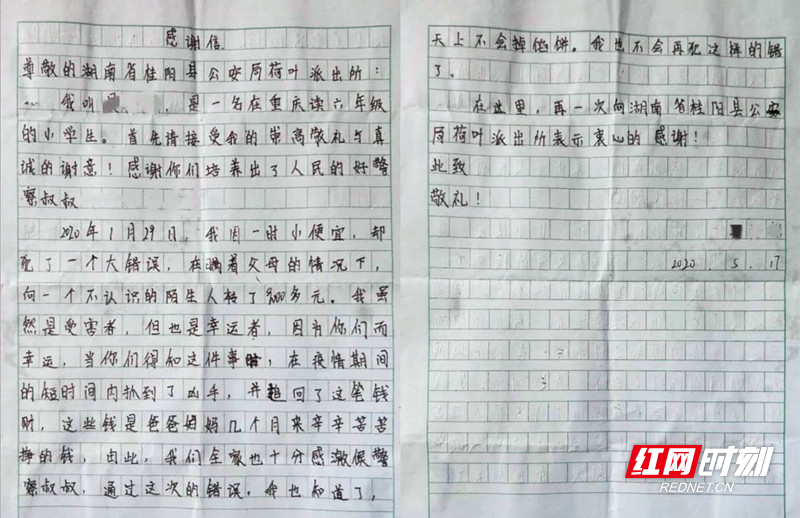 感谢信
尊敬的湖南省桂阳县公安局荷叶派出所：
我叫 ，是一名在重庆读六年级
的小学生。首先请接受我的崇高敬礼与真
诚的谢意！感谢你们培养出了人民的好警
察叔叔
2020年1月29日，我因一时小便宜，却
犯了一个大错误，在瞒着父母的情况下，
向一个不认识的陌生人转了 000多元。我虽
然是受害者，但也是幸运者，因为你们而
幸运，当你们得知这件事时，在疫情期间
的短时间内抓到了凶手，并追回了这笔钱
财，这些钱是爸爸妈妈几个月来辛辛苦苦
挣的钱，由此，我们全家也十分感激 警
察叔叔，通过这次的错误，我也知道了，
天上不会掉馅饼。我也不会再犯这样的错
了。
在这里，再一次向湖南省桂阳县公安
局荷叶派出所表示衷心的感谢！
此致
敬礼！
2020.5.17
红网时刻
REDNET.CN